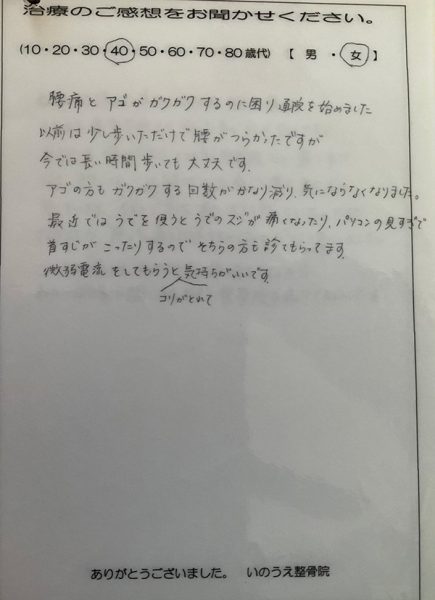 治療のご感想をお聞かせください。
(10・20・30・40・50・60・70・80歳代) 【 男 ・ 女 】
腰痛とアゴがガクガクするのに困り通院を始めました
以前は少し歩いただけで腰がつらかったですが
今では長い時間歩いても大丈夫です。
アゴの方もガクガクする回数がかなり減り、気にならなくなりました。
最近ではうでを使うとうでのスジが痛くなったり、パソコンの見すぎで
首すじがこったりするのでそちらの方も診てもらってます。
微弱電流をしてもらうと気持ちがいいです。
コリがとれて
ありがとうございました。 いのうえ整骨院